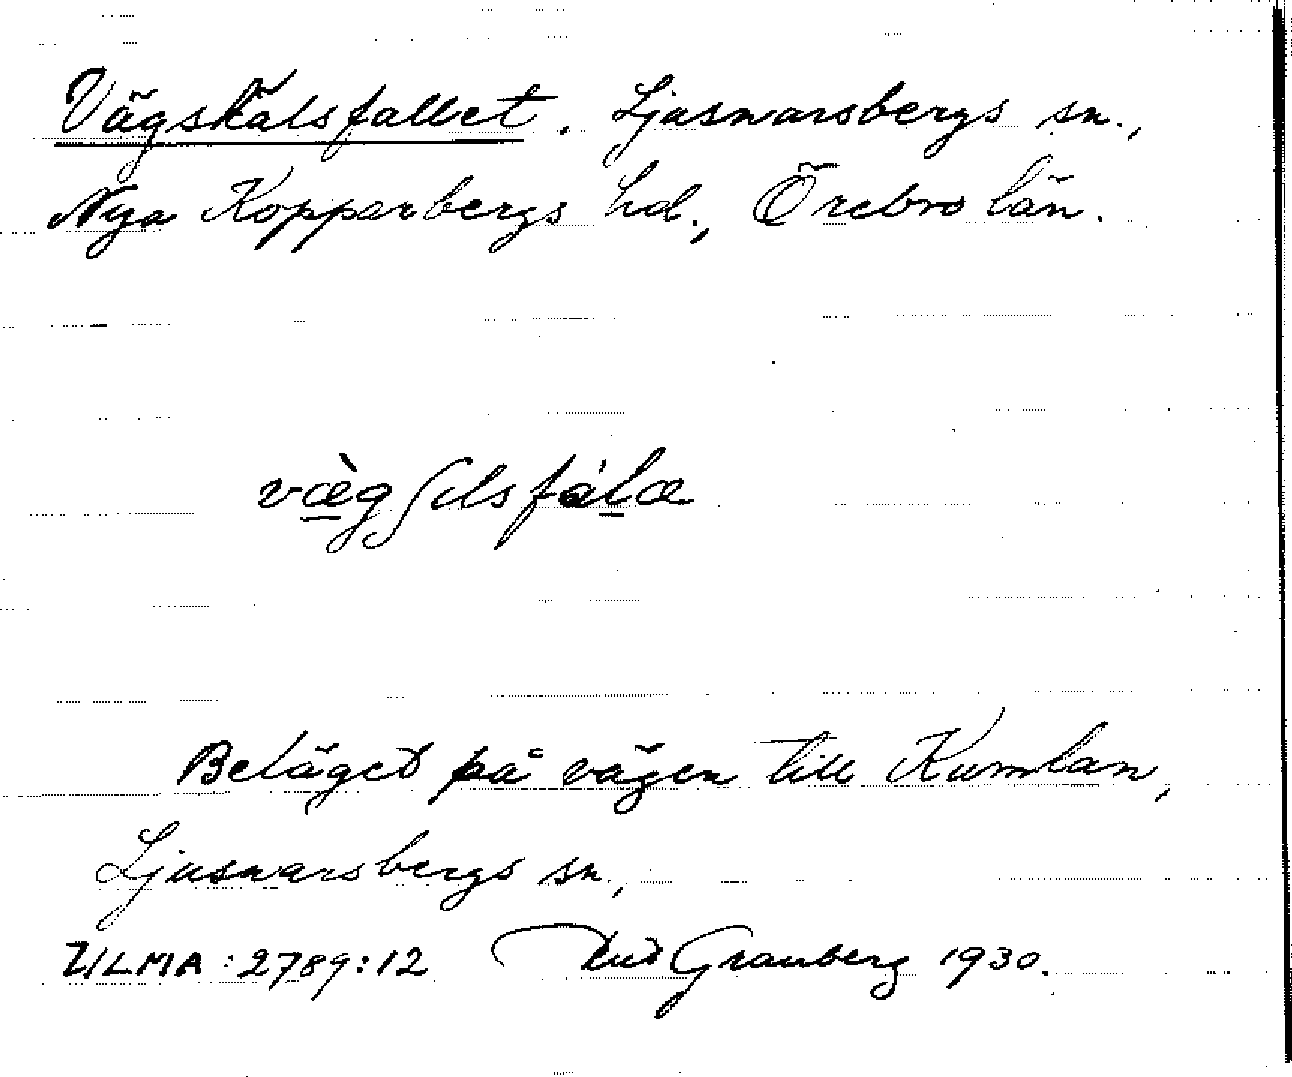 Vägskälsfallet. Ljusnarsbergs sn.,
Nya Kopparbergs hd., Örebro län.
væ̀gʃelsfálæ
Beläget på vägen till Kumlan,
Ljusnarsbergs sn,
ULMA:2789:12 Granberg 1930.